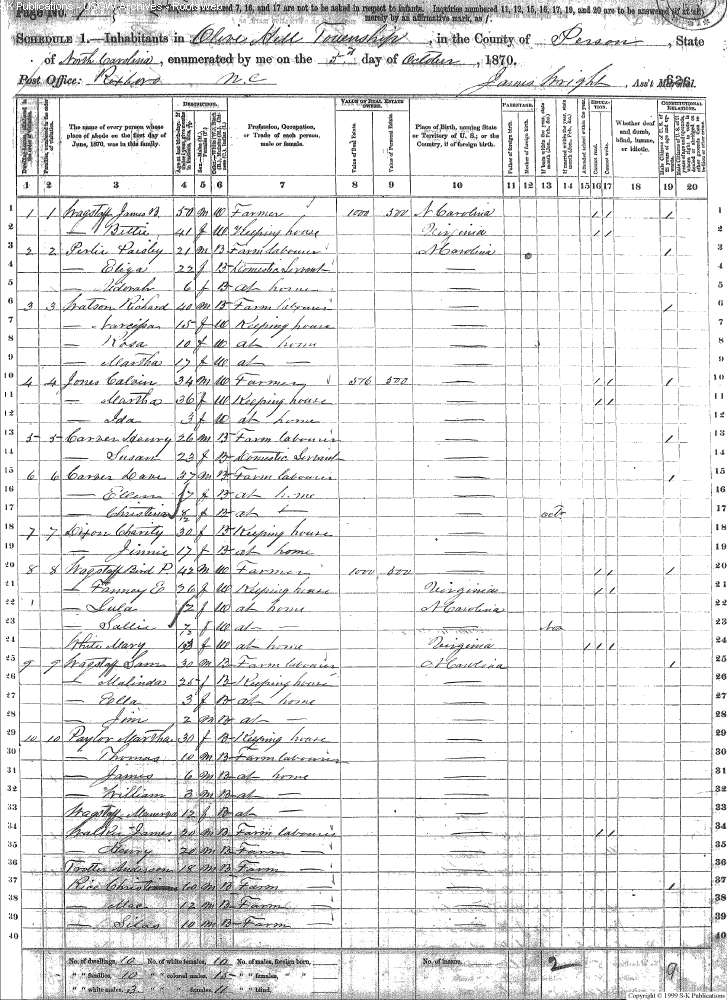 S-K Publications - USGW Archives - RootsWeb
Page No. 1
Inquiries numbered 7, 16, and 17 are not to be asked in respect to infants. Inquiries numbered 11, 12, 15, 16, 17, 19, and 20 are to be answered (if at all)
merely by an affirmative mark, as /.
SCHEDULE 1.—Inhabitants in Olive Hill Township, in the County of Person, State
of North Carolina, enumerated by me on the 5th day of October, 1870.
Post Office: Roxboro N.C. James Wright, Ass't Marshal.
DESCRIPTION. VALUE OF REAL ESTATE OWNED. PARENTAGE. EDUCATION. CONSTITUTIONAL RELATIONS.
The name of every person whose place of abode on the first day of June, 1870, was in this family.
Profession, Occupation, or Trade of each person, male or female.
Value of Real Estate.
Value of Personal Estate.
Place of Birth, naming State or Territory of U. S.; or the Country, if of foreign birth.
Father of foreign birth.
Mother of foreign birth.
Attended school within the year.
Cannot read.
Cannot write.
Whether deaf and dumb, blind, insane, or idiotic.
1 2 3 4 5 6 7 8 9 10 11 12 13 14 15 16 17 18 19 20
1 1 1 Wagstaff James B. 50 M W Farmer 1000 500 N Carolina / / / 1
2 — Bettie 41 f W Keeping house Virginia / / 2
3 2 2 Perlie Paisley 21 M B Farm labourer N Carolina / 3
4 — Eliza 22 f B Domestic Servant — 4
5 — Adorah 6 f B at home — 5
6 3 3 Watson Richard 40 M B Farm labourer — / 6
7 — Narcissa 15 f W Keeping house — 7
8 — Rosa 10 f W at home — 8
9 — Martha 17 f W at — — 9
10 4 4 Jones Calvin 34 M W Farmer 576 500 — / / / 10
11 — Martha 36 f W Keeping house — / / 11
12 — Ida 3 f W at home — 12
13 5 5 Carver Henry 26 M B Farm labourer — / 13
14 — Susan 23 f B Domestic Servant — 14
15 6 6 Carver Dave 37 M B Farm labourer — / 15
16 — Ellen 17 f B at home — 16
17 — Christina 8/12 f B at — — Octr 17
18 7 7 Dixon Charity 30 f B Keeping house — 18
19 — Jinnie 17 f B at home — 19
20 8 8 Wagstaff Bird P. 42 M W Farmer 1000 500 — / / / 20
21 — Fanney E 26 f W Keeping house Virginia / / 21
22 — Lula 2 f W at home N Carolina 22
23 — Sallie 7/12 f W at — — Nov 23
24 White Mary f W at home Virginia / / / 24
25 9 9 Wagstaff Sam 30 M B Farm labourer N Carolina / 25
26 — Malinda 25 f B Keeping house — 26
27 — Ella 3 f B at home — 27
28 — Jim 2 M B at — — 28
29 10 10 Paylor Martha 30 f B Keeping house — 29
30 — Thomas 10 M B Farm labourer — 30
31 — James 6 M B at home — 31
32 — William 3 M B at — — 32
33 Wagstaff Manerva 12 f B at — — 33
34 Walker James 20 M B Farm labourer — / / 34
35 — Henry 20 M B Farm — — 35
36 Trotter Anderson 18 M B Farm — — 36
37 Rice Christian M B Farm — — / 37
38 — Mac 12 M B Farm — — 38
39 — Silas 10 M B Farm — — 39
40 40
No. of dwellings, 10 No. of white females, 10 No. of males, foreign born, No. of insane, 2
" " families, 10 " " colored males, 15 " " females, 9
" " white males, 3 " " females, 11 " " blind,
Copyright © 1999 S-K Publications